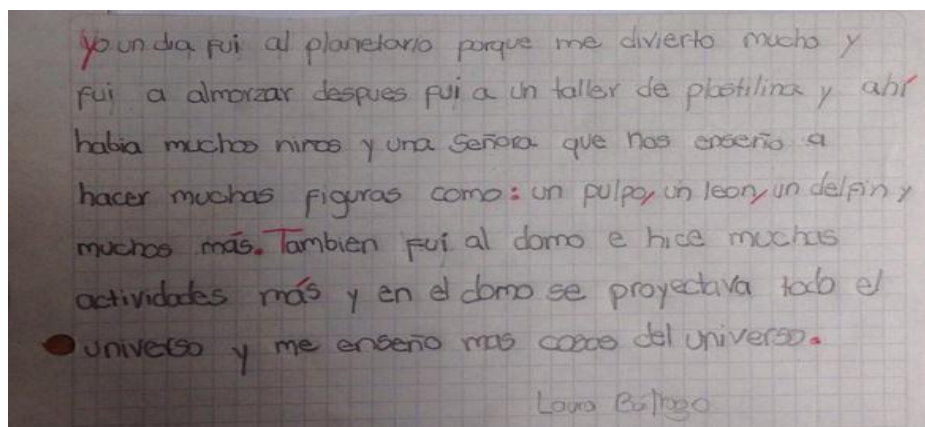 yo un dia fui al planetario porque me divierto mucho y
fui a almorzar despues fui a un taller de plastilina y ahí
habia muchos niños y una Señora que nos enseño a
hacer muchas figuras como: un pulpo, un leon, un delfin y
muchos más. Tambien fui al domo e hice muchas
actividades más y en el domo se proyectava todo el
universo y me enseño mas cosas del universo.
Laura